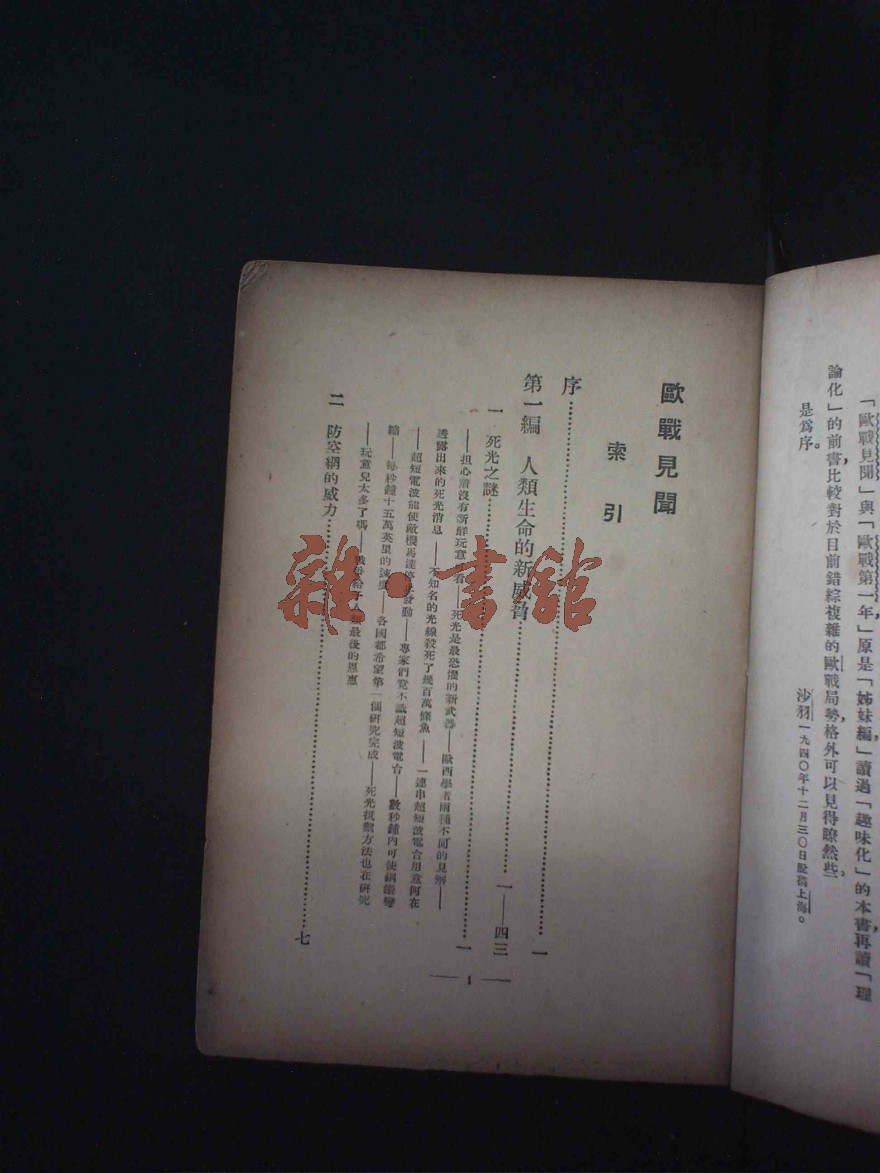 「歐戰見聞」與「歐戰第一年」原是「姊妹編」，讀過「趣味化」的本書，再讀「理
論化」的前書，比較對於目前錯綜複雜的歐戰局勢，格外可以見得瞭然些。
是爲序。
沙羽一九四〇年十二月三〇日脫稿上海。
歐戰見聞
索引
序……一
第一編 人類生命的新威脅……一——四三
一 死光之謎……一
——担心着沒有新鮮玩意看——死光是最恐怖的新武器——歐西學者兩種不同的見解——
透露出來的死光消息——不知名的光線殺死了幾百萬條魚——一連串超短波電台用意何在
——超短電波能使敵機馬達停止發動——專家們竟不識超短波電台——數秒鐘內可使鋼鐵變
——每秒鐘十五萬英里的速度——各國都希望第一個研究完成——死光抵禦方法也在研究
——玩意兒太多了嗎——戰爭給予人類最後的恩惠
二 防空網的威力……七
— 1 —
雜·書館